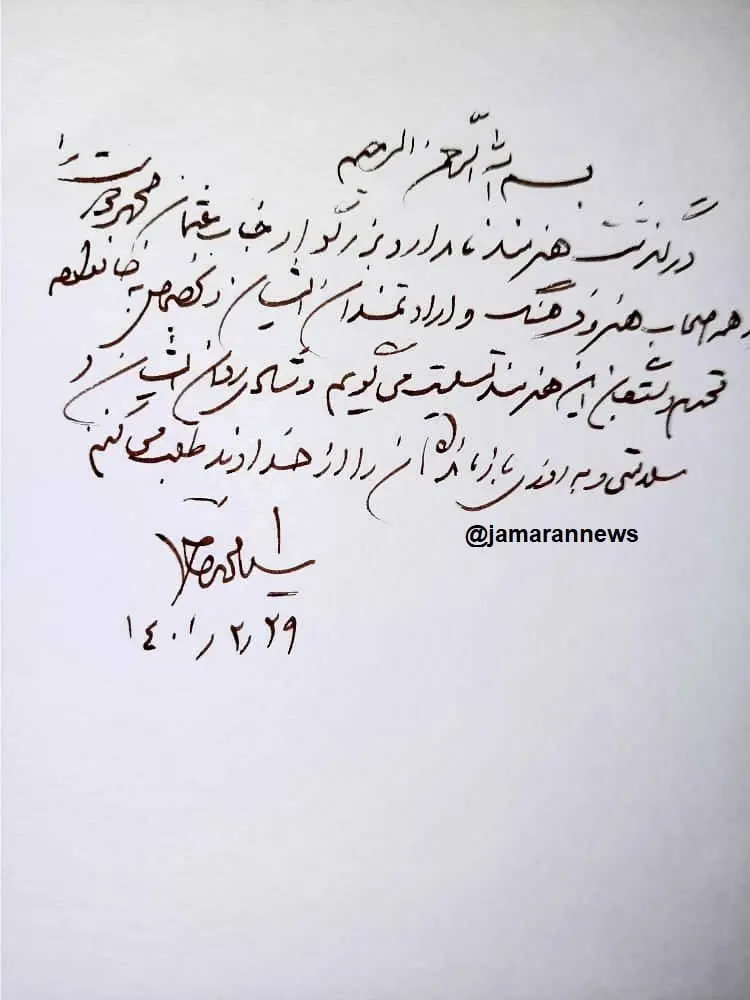 بسم الله الرحمن الرحیم
درگذشت هنرمند نامدار و بزرگوار جناب عثمان محمدپرست را
به همه اصحاب هنر و فرهنگ و ارادتمندان ایشان و بخصوص به خانواده
محترم و متعلقان این هنرمند تسلیت می گویم و شادی روان ایشان و
سلامتی و بهروزی بازماندگان را از خداوند طلب می کنم
سید محمد خاتمی
۱۴۰۱/۲/۲۹
@jamarannews